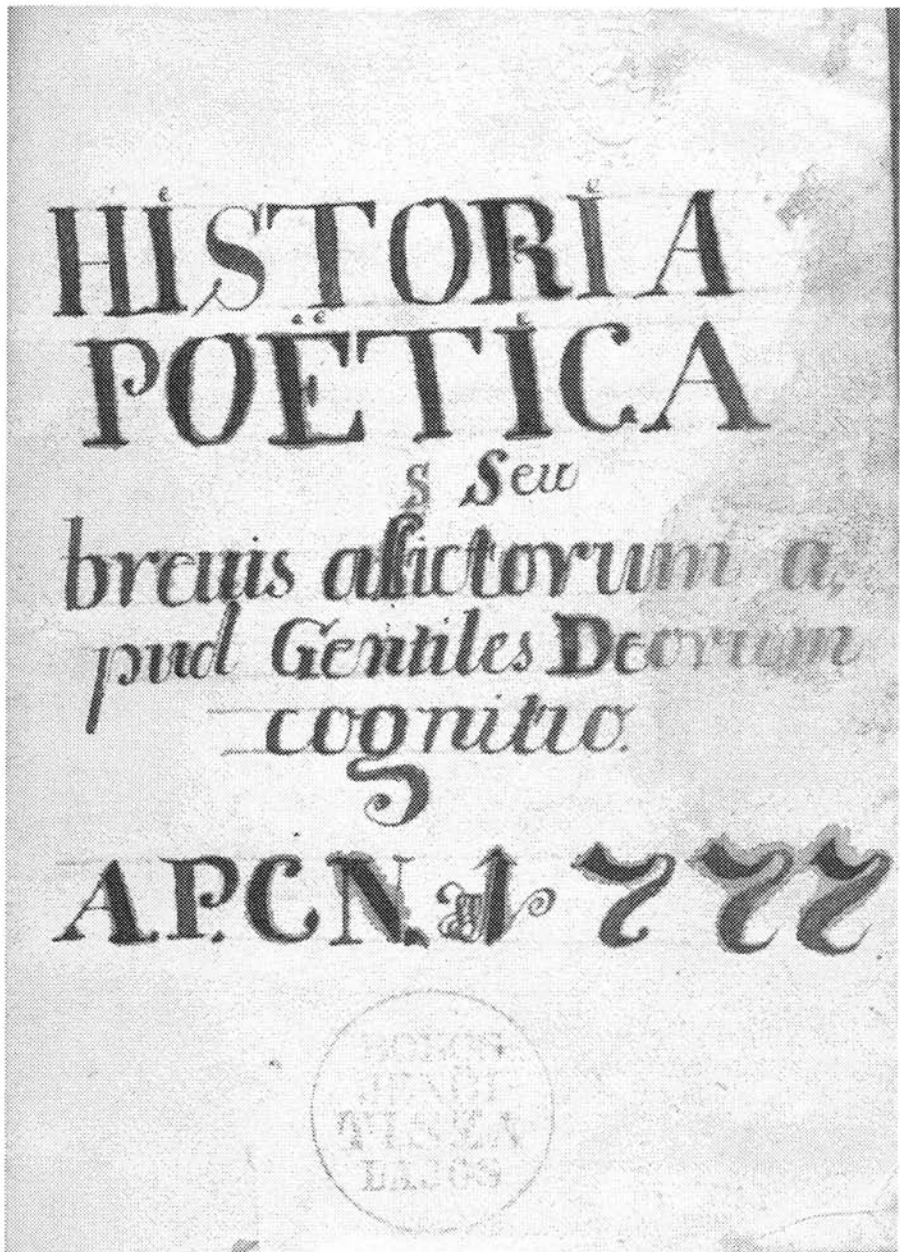 HISTORIA
POËTICA
s Seu
breuis afictorum a,
pud Gentiles Deorum
cognitio.
A.P.C.N. 1777